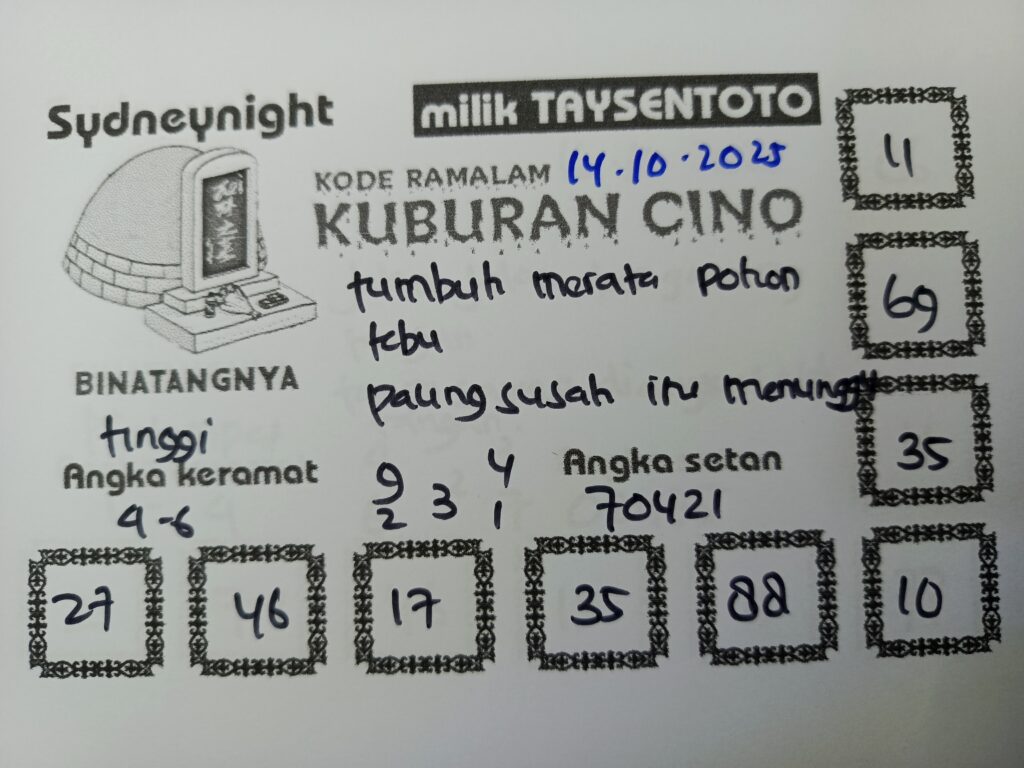 Sydneynight
milik TAYSENTOTO
KODE RAMALAM 14.10.2025
KUBURAN CINO
tumbuh merata pohon
tebu
paling susah itu menunggu
BINATANGNYA
tinggi
Angka keramat
4-6
9 4
2 3 1
Angka setan
70421
11
69
35
27 46 17 35 88 10